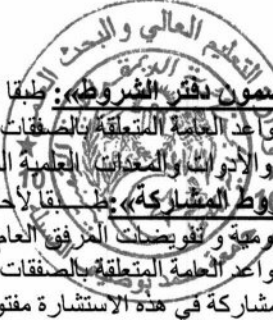 التعليم العالي و البحث
مضمون دفتر الشروط»: طبقا
واعد العامة المتعلقة بالصفقات
والأدوات والمعدات العلمية
وط المشاركة»: طبقا لأح
ومية و تفويضات المرفق العام
واعد العامة المتعلقة بالصفقات
مشاركة في هذه الاستشارة مفتو